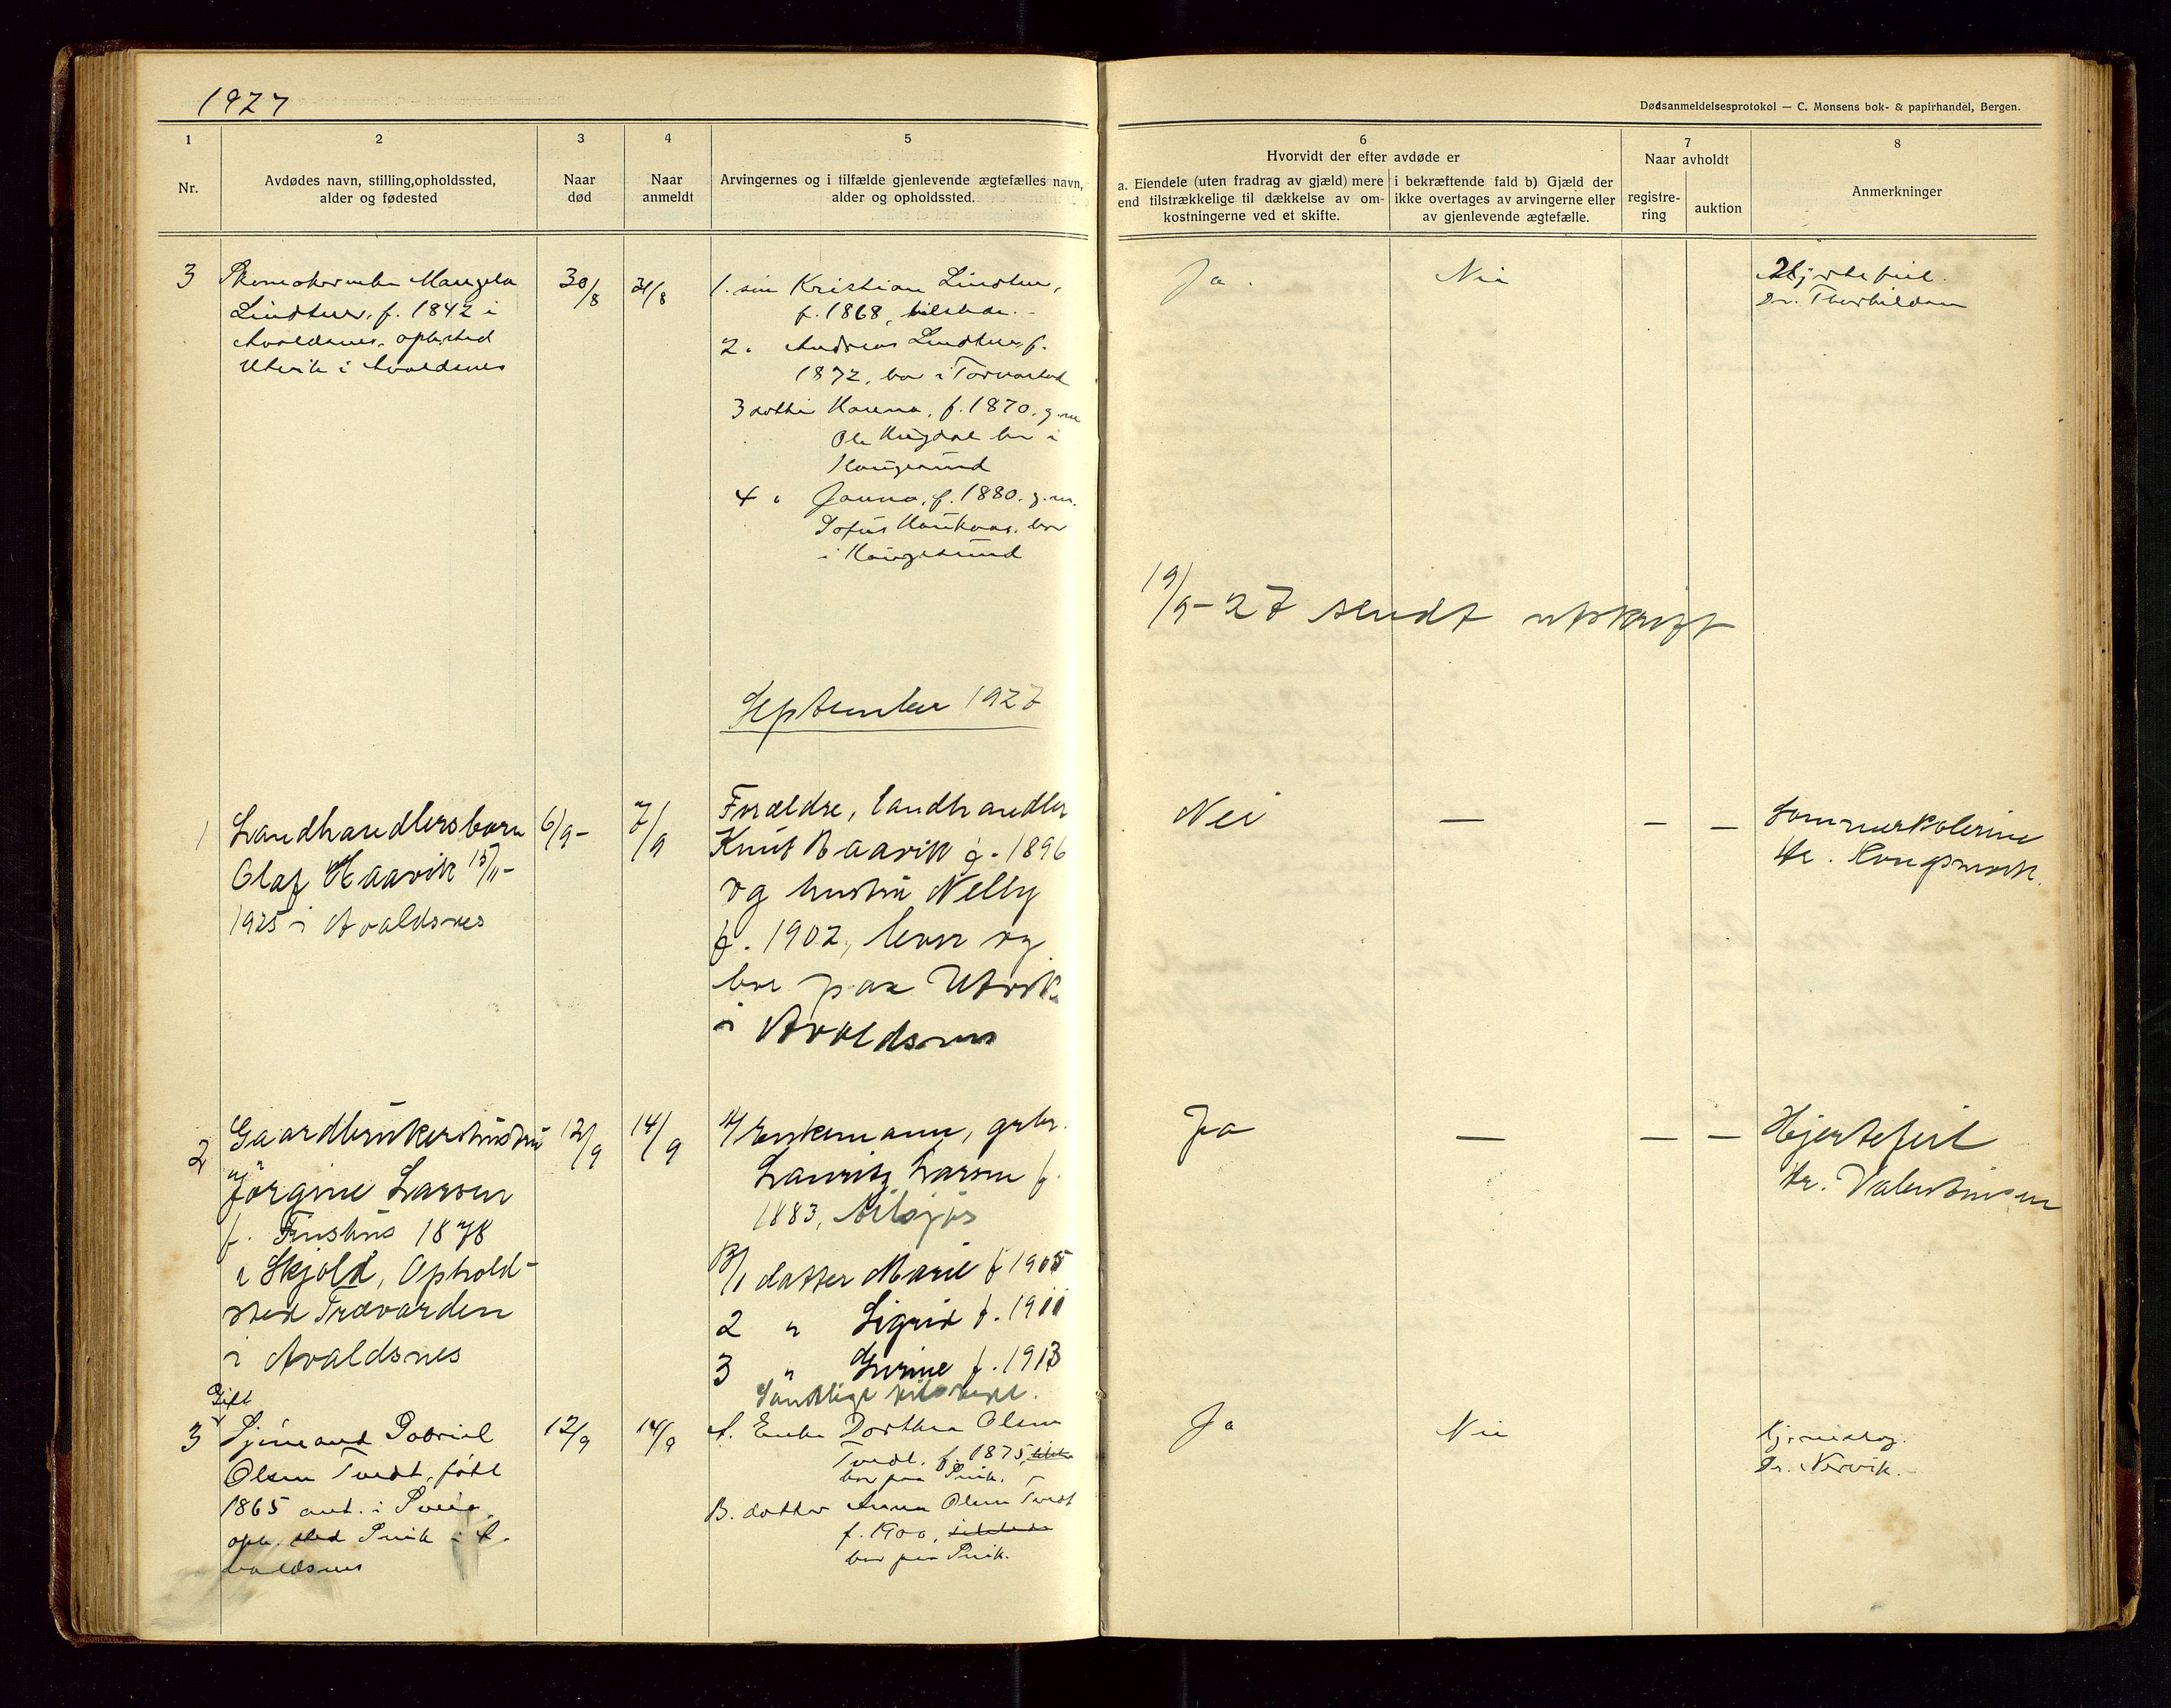 1927
Dødsanmeldelsesprotokol — C. Monsens bok- & papirhandel, Bergen.
1
2
3
4
5
6
7
8
Nr.
Avdødes navn, stilling, opholdssted,
alder og fødested
Naar
død
Naar
anmeldt
Arvingernes og i tilfælde gjenlevende ægtefælles navn,
alder og opholdssted.
Hvorvidt der efter avdøde er
a. Eiendele (uten fradrag av gjæld) mere
end tilstrækkelige til dækkelse av om-
kostningerne ved et skifte.
i bekræftende fald b) Gjæld der
ikke overtages av arvingerne eller
av gjenlevende ægtefælle.
Naar avholdt
registre-
ring
auktion
Anmerkninger
3
Lindtner, f. 1842 i
Avaldsnes, oph.sted
Utvik i Avaldsnes
30/8
31/8
1. søn Kristian Lindtner,
f. 1868, tilstede.
2. " Andreas Lindtner, f.
1872, bor i Torvastad
3 datter Hanna, f. 1870, g.m.
Ole bor i
Haugesund
4 " Janna, f. 1880. g.m.
bor
i Haugesund
Ja.
Nei
Hjertefeil.
Dr.
19/9-27 sendt utskrift
September 1927
1
Landhandlersbarn
Olaf Haavik 15/11-
1925 i Avaldsnes
6/9-
7/9
Forældre, landhandler
Knut Haavik f. 1896
og hustru Nelly
f. 1902, lever og
bor paa Utvik
i Avaldsnes
Nei
—
—
—
Sommerkolerine
Dr.
2
Gaardbrukerhustru
Jörgine Larsen
f. 1878
i Skjold, Ophold-
sted Trævarden
i Avaldsnes
12/9
14/9
A/ Enkemann, grbr.
Lauritz Larsen f.
1883,
B/1 datter Marie f 1905
2 " Sigrid f. 1911
3 " f. 1913
Samtlige
Ja
—
—
—
Hjertefeil
Dr. Valentinsen
Gift
3
Sjømand Gabriel
Olsen Tvedt, født
1865 ant. i Sveio,
oph. sted i A-
valdsnes
12/9
14/9
A. Enke Dorthea Olsen
Tvedt, f. 1875,
bor paa
B. datter Anna Olsen Tvedt
f. 1900,
bor paa
Ja
Nei
Hjerneslag.
Dr. Nervik.